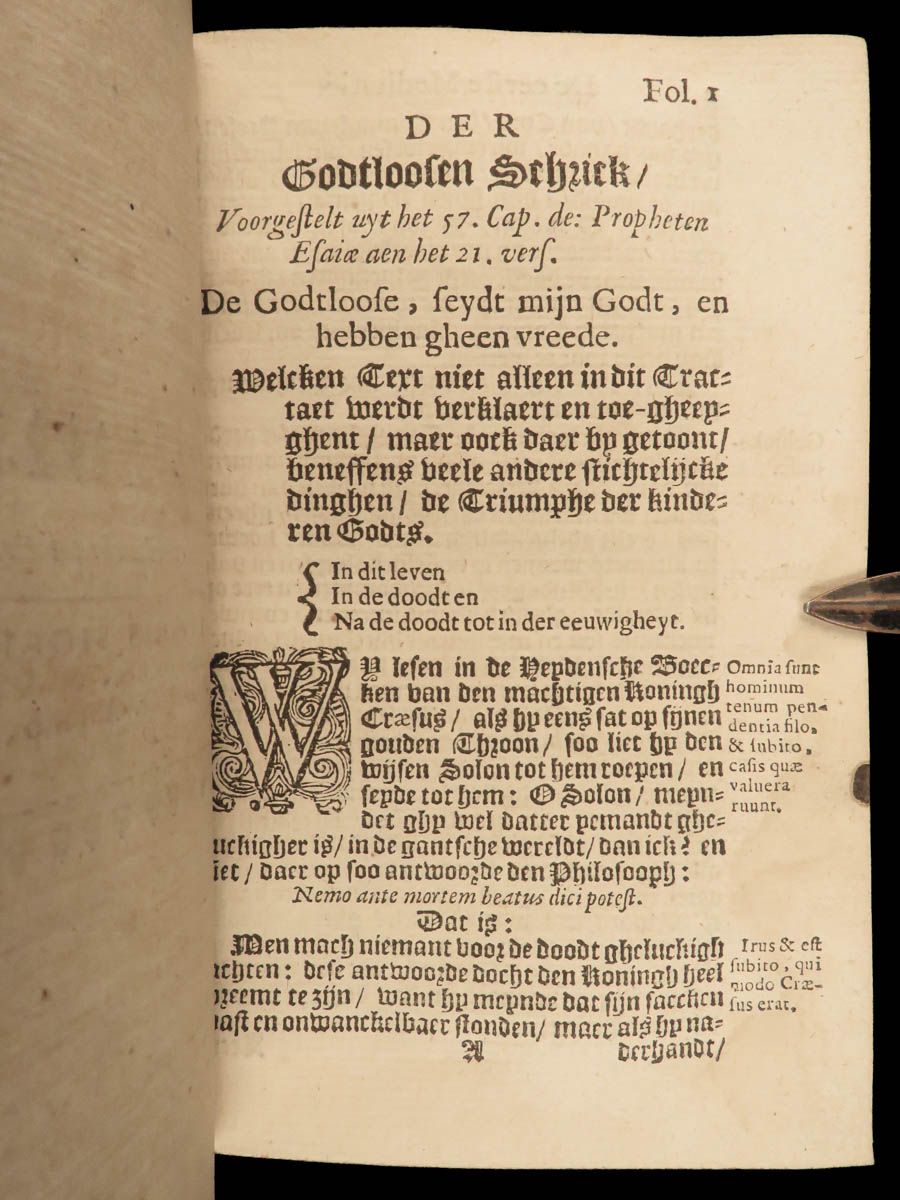 Fol. 1
DER
Godtloosen Schrick/
Voorgestelt uyt het 57. Cap. de: Propheten
Esaiæ aen het 21. vers.
De Godtloose, seydt mijn Godt, en
hebben gheen vreede.
Welcken Text niet alleen in dit Trac-
taet werdt verklaert en toe-gheey-
ghent / maer oock daer by getoont/
beneffens veele andere stichtelijcke
dinghen / de Triumphe der kinde-
ren Godts.
In dit leven
In de doodt en
Na de doodt tot in der eeuwigheyt.
WY lesen in de Heydensche Boec-
ken van den machtigen Koningh
Cræsus / als hy eens sat op sijnen
gouden Throon / soo liet hy den
wijsen Solon tot hem roepen / en
seyde tot hem: O Solon / meyn-
det ghy wel datter yemandt ghe-
uckigher is/ in de gantsche wereldt/ dan ick? en
iet / daer op soo antwoorde den Philosooph:
Nemo ante mortem beatus dici potest.
Dat is:
Men mach niemant voor de doodt gheluckigh
chten: dese antwoorde docht den Koningh heel
reemt te zijn / want hy meynde dat sijn saecken
ast en onwanckelbaer stonden/ maer als hy na-
A derhandt/
Omnia sunt
hominum
tenum pen-
dentia filo,
& subito,
casis quæ
valuera
ruunt.
Irus & est
subito, qui
modo Cræ-
sus erat.